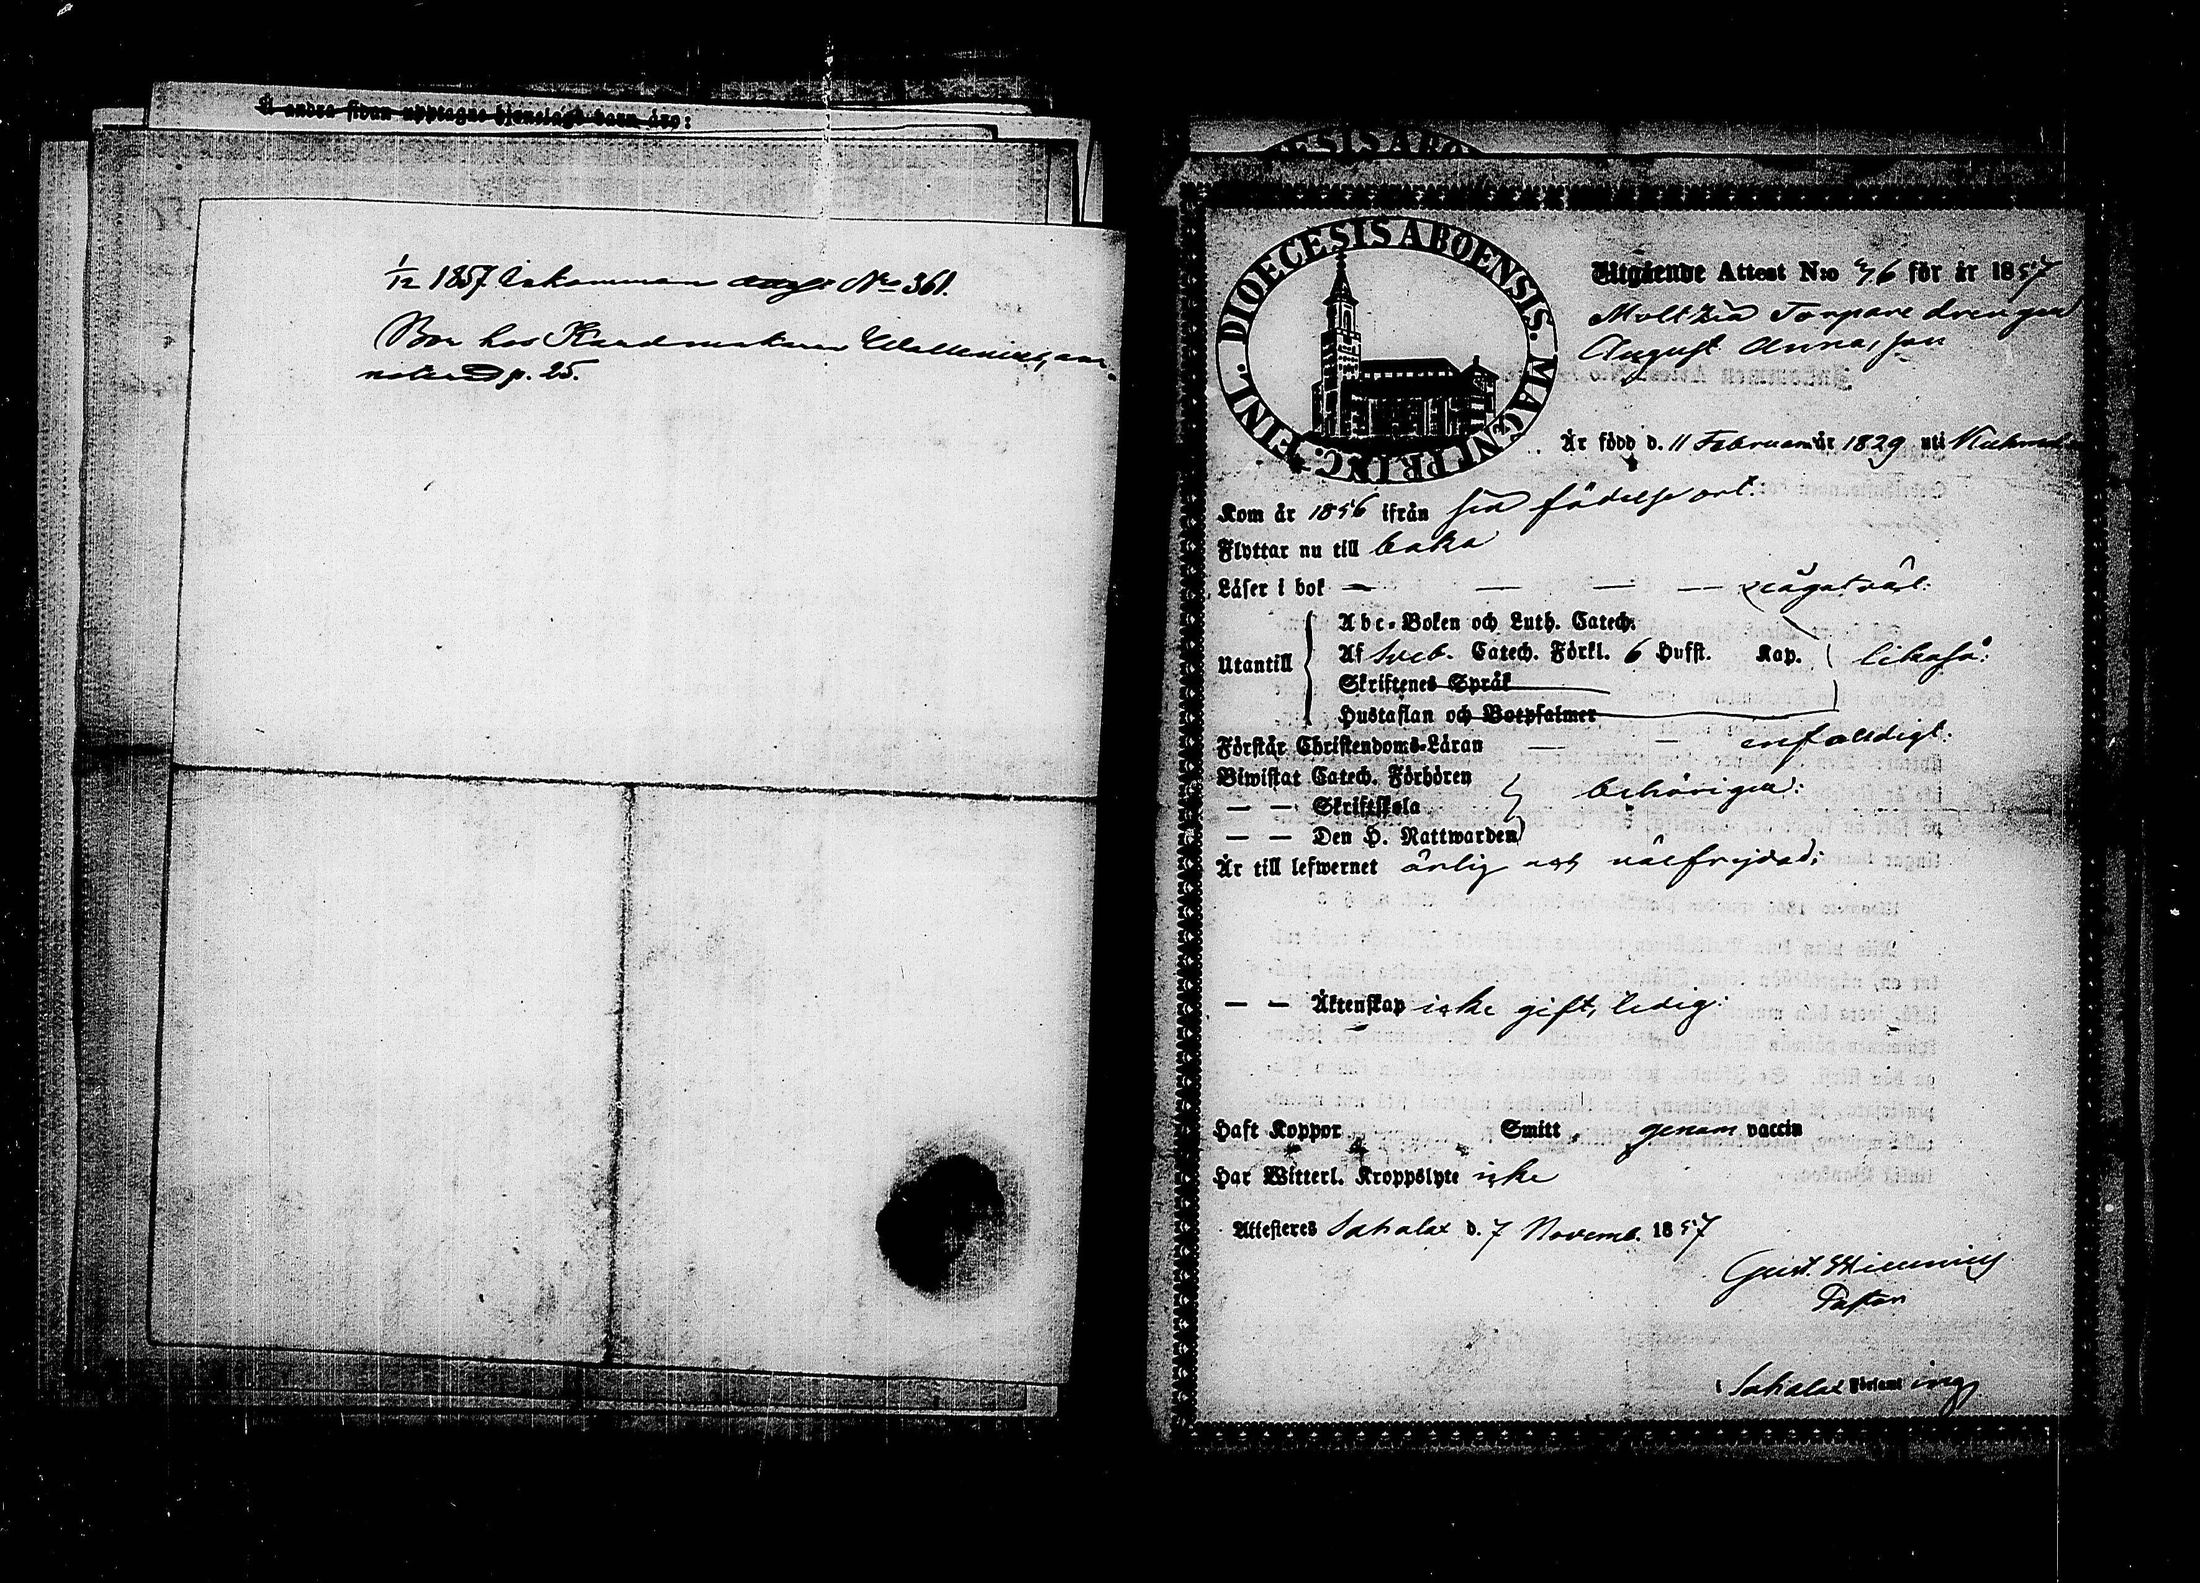 å andra sidan upptagne hjonelags barn äro:
1/12 1857 Inkommen No 361.
Bor hos Handmakaren
p. 25.
DIOECESIS ABOENSIS. MAGNI PRINC. FINL.
Utgående Attest N:o 76 för år 1857
Torpare drengen
August Annasson
Är född d. 11 Februari år 1829 uti
Kom år 1856 ifrån sin födelse ort.
Flyttar nu till baka
Läser i bok — — — — något väl.
Abc-Boken och Luth. Catech.
Utantill Af Sveb. Catech. Förkl. 6 Hufst. Kap. likaså:
Skriftenes Språk
Hustaflan och Botpsalmer
Förstår Christendoms-Läran — — enfaldigt.
Biwistat Catech. Förhören
— — Skriftskola behörigen:
— — Den H. Nattwarden
Är till lefwernet ärlig och välfrejdad;
— — Äktenskap icke gift, ledig:
Haft Koppor Smitt genom vaccin
Har Witterl. Kroppslyte icke
Attesteras Sahalax d. 7 Novemb. 1857
Gust.
Pastor
i Sahalax Församling